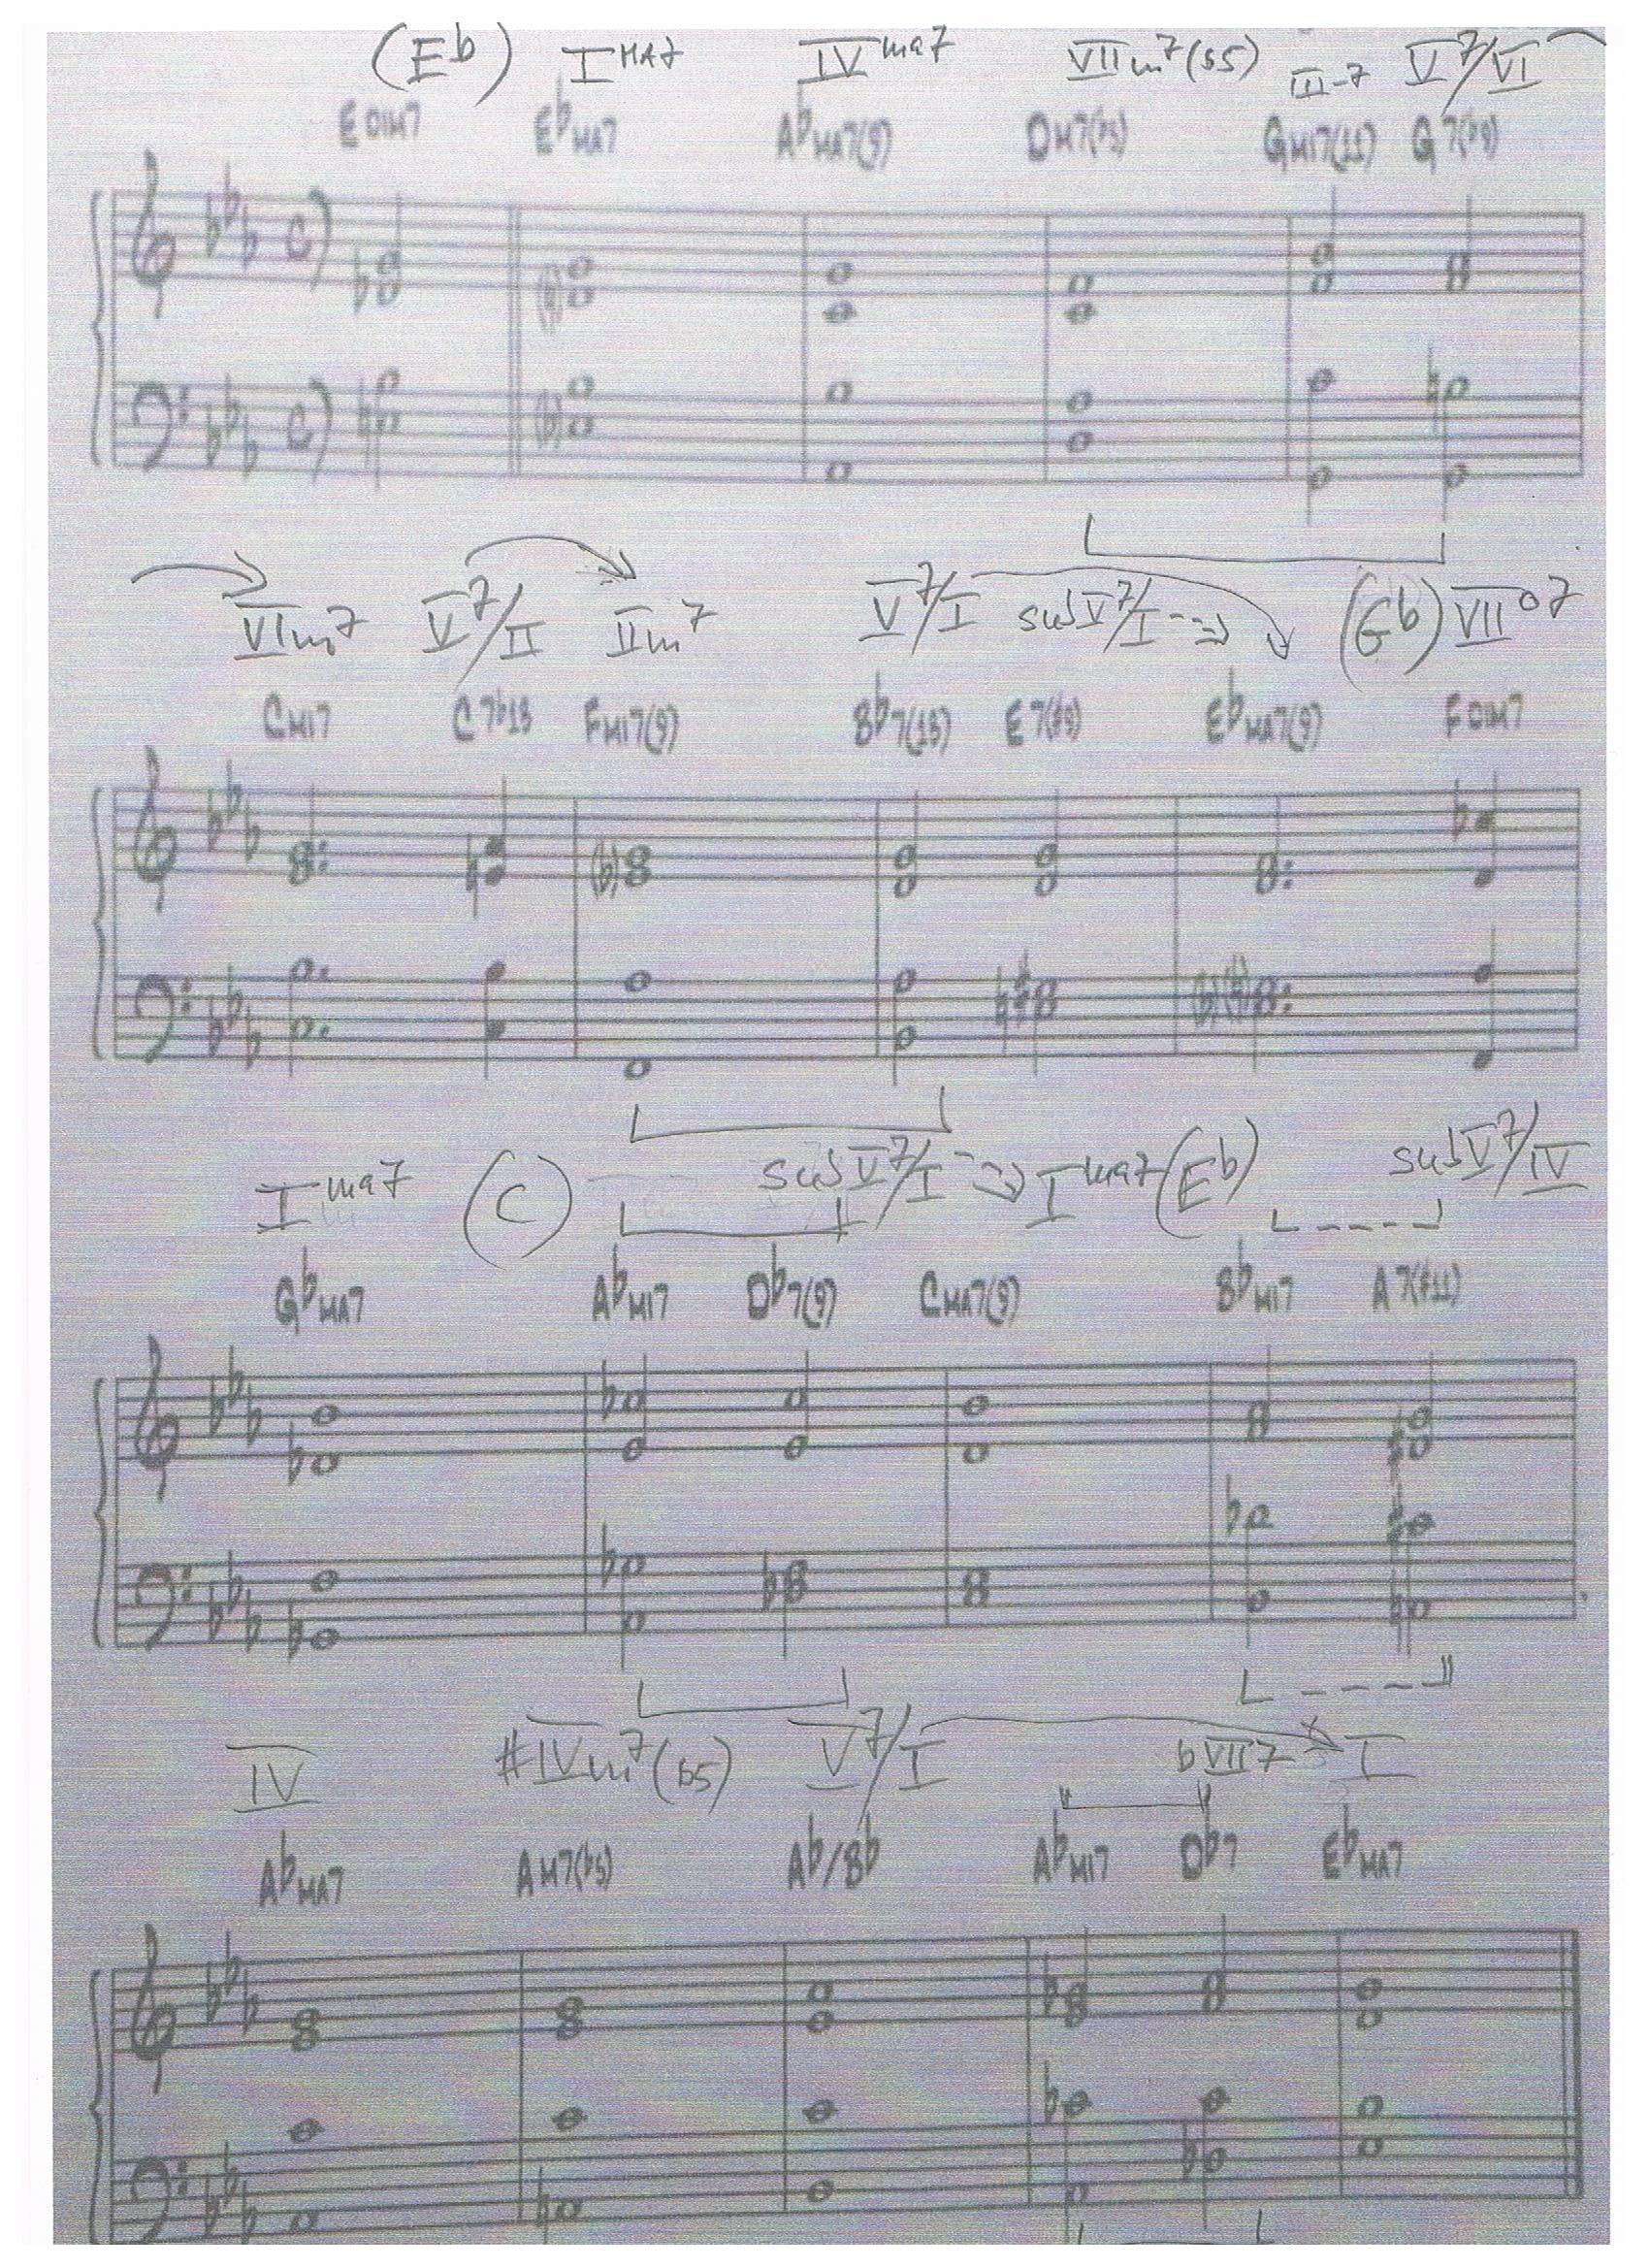 (Eb) IMA7 IVma7 VIIm7(b5) III-7 V7/VI
EDIM7 EbMA7 AbMA7(9) DM7(b5) GMI7(11) G7(b9)
VIm7 V7/II IIm7 V7/I subV7/I (Gb) VIIo7
CMI7 C7b13 FMI7(9) Bb7(13) E7(#9) EbMA7(9) FDIM7
Ima7 (C) subV7/I Ima7 (Eb) subV7/IV
GbMA7 AbMI7 Db7(9) CMA7(9) BbMI7 A7(#11)
IV #IVm7(b5) V7/I bVII7 I
AbMA7 AM7(b5) Ab/Bb AbMI7 Db7 EbMA7